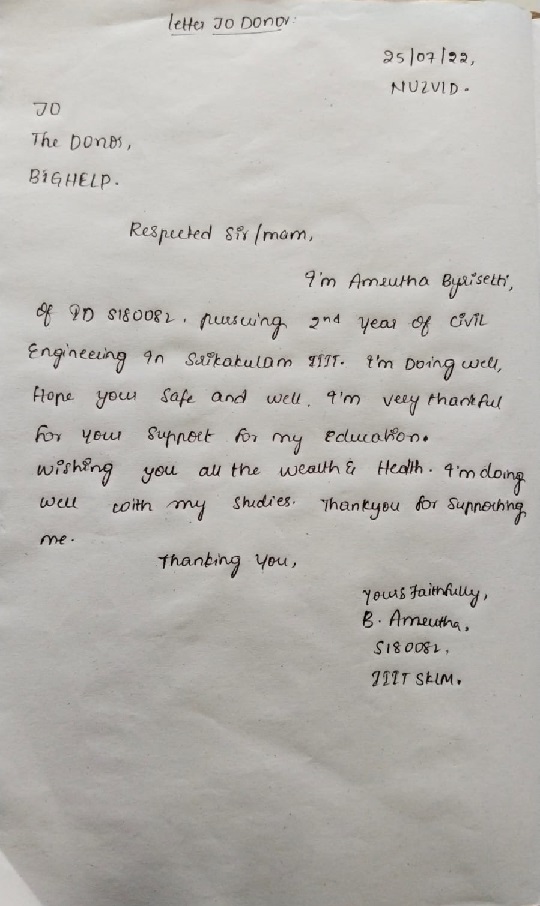 letter To Donor:
25/07/22,
NUZVID.
TO
The Donor,
BIGHELP.
Respected Sir/mam,
I'm Amrutha Byrisetti,
of ID S180082. pursuing 2nd year of Civil
Engineering In Srikakulam IIIT. I'm Doing well,
Hope your safe and well. I'm very thankful
for your Support for my education.
wishing you all the wealth & Health. I'm doing
well with my studies. Thankyou for Supporting
me.
Thanking You,
Yours Faithfully,
B. Amrutha,
S180082,
IIIT SKLM.